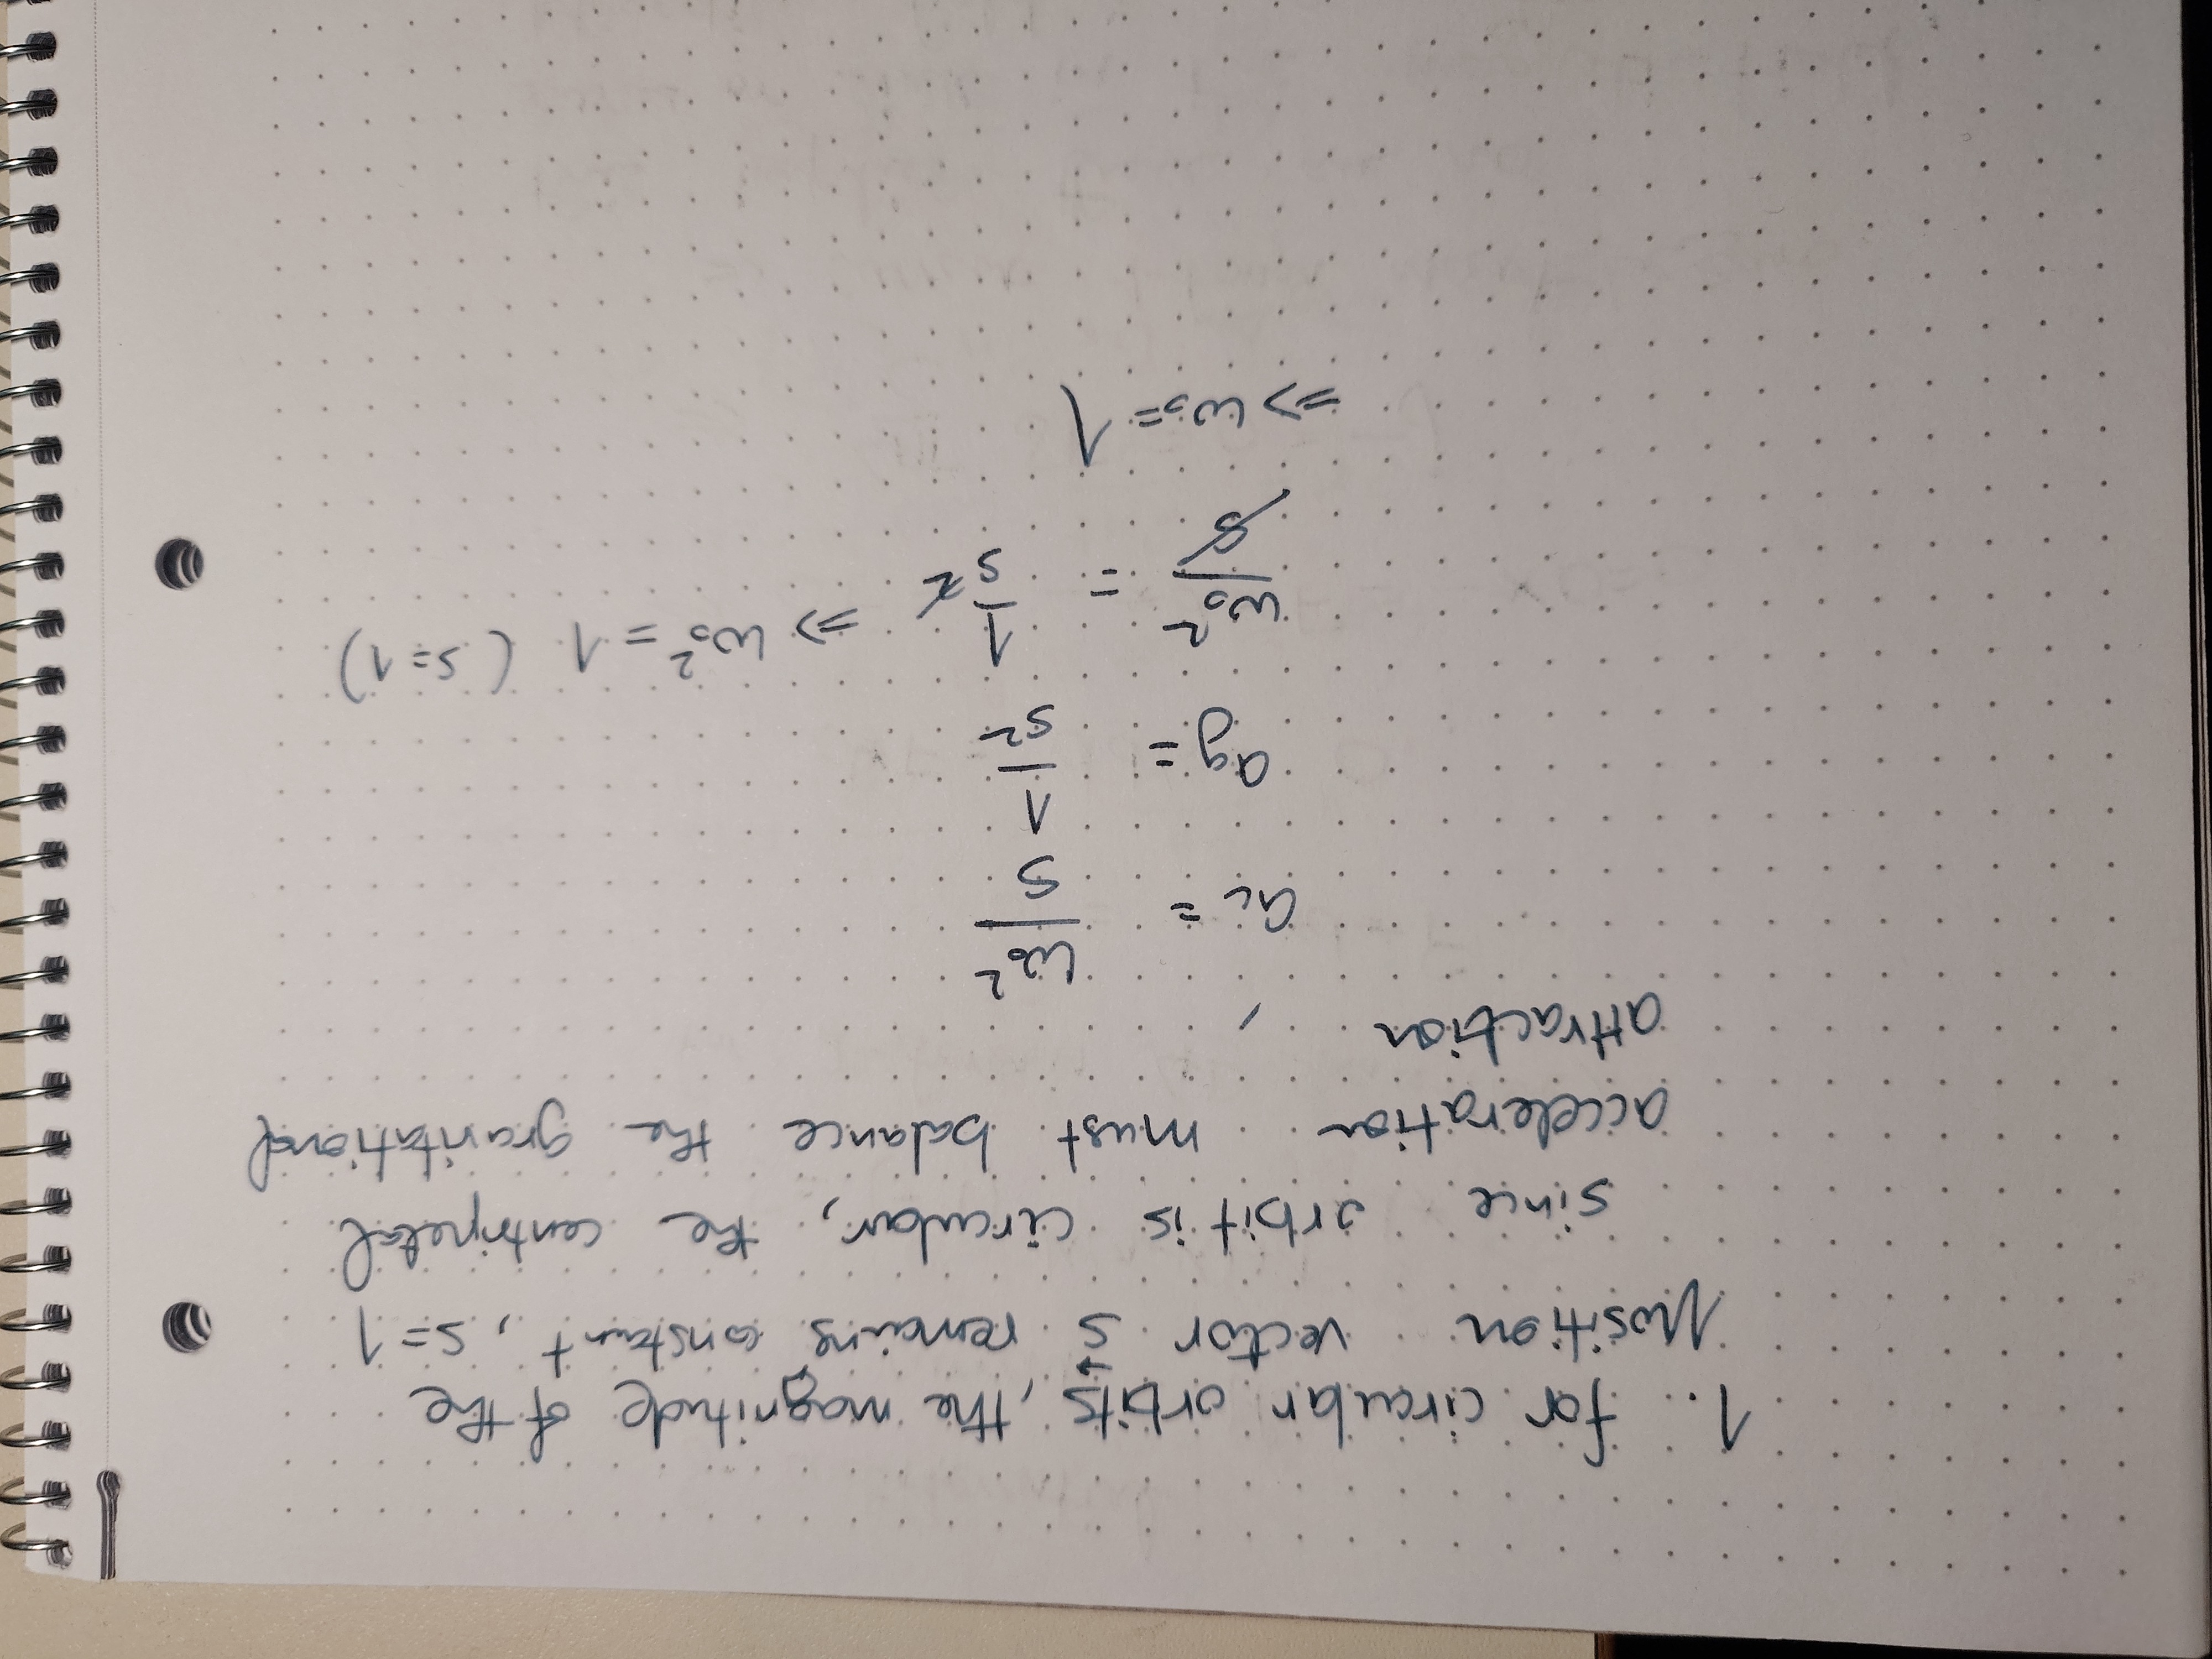 1. for circular orbits, the magnitude of the
position vector s⃗ remains constant, s=1
since orbit is circular, the centripetal
acceleration must balance the gravitational
attraction ,
ac = ω₀²/s
ag = 1/s²
ω₀²/s = 1/s² ⇒ ω₀² = 1 (s=1)
⇒ ω₀ = 1